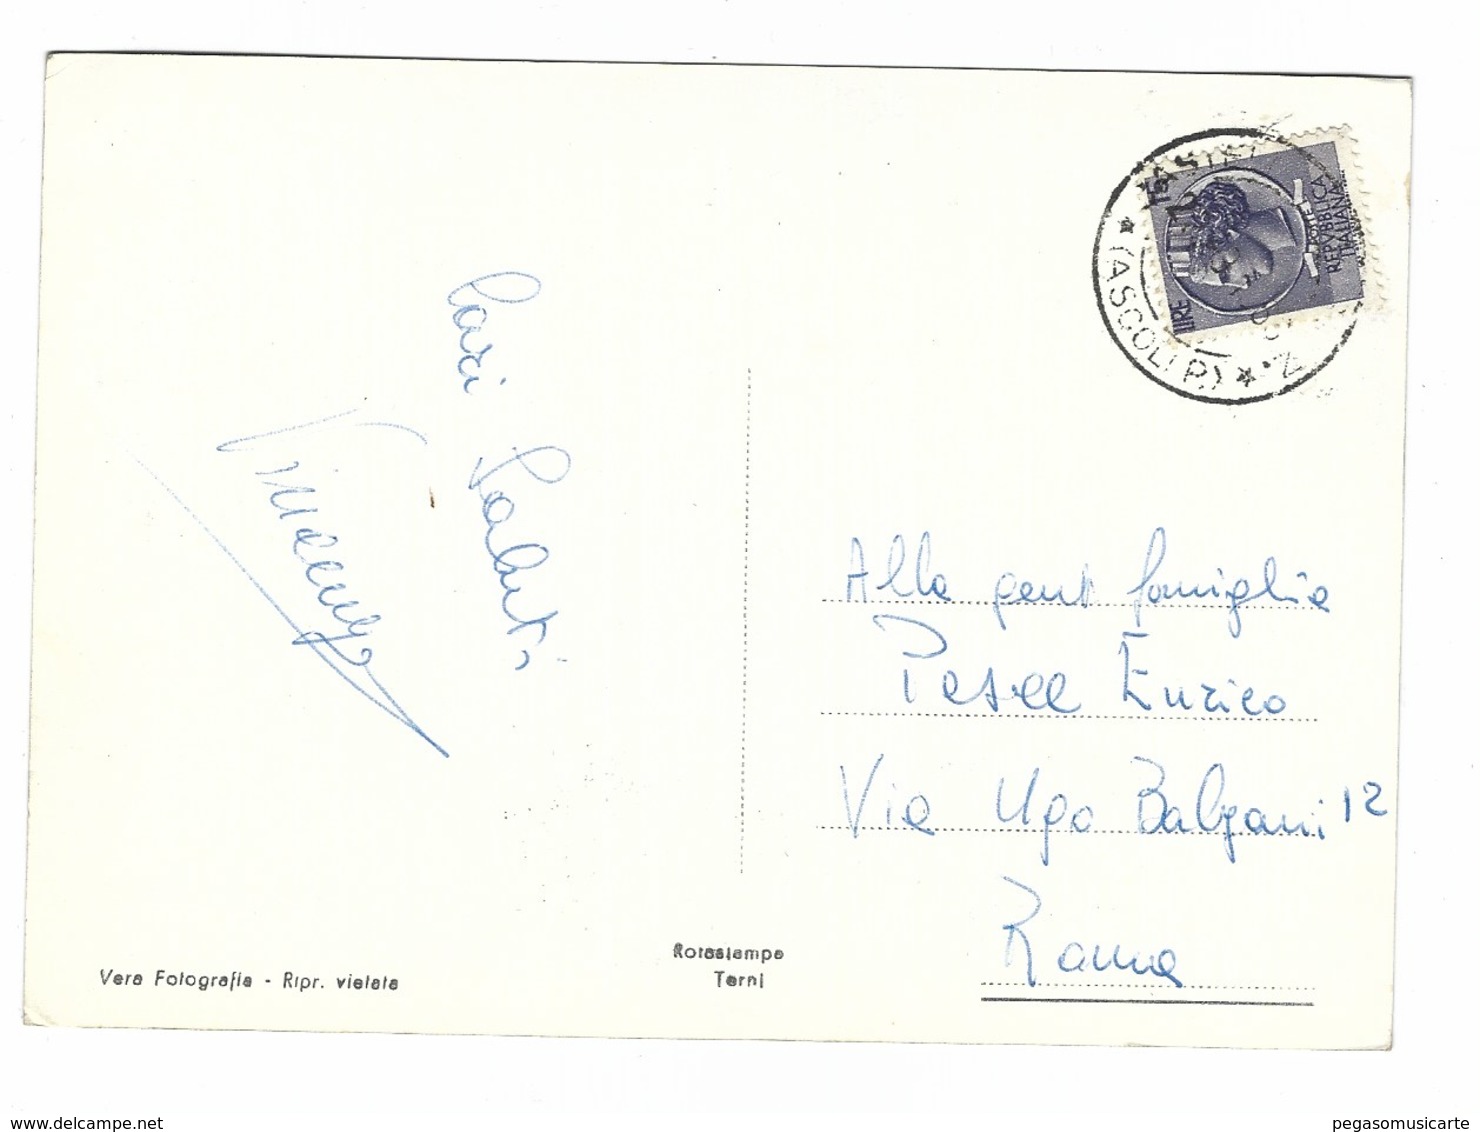 Cari Saluti
Vincenzo
LIRE
15
POSTE
REPVBBLICA
ITALIANA
(ASCOLI P.)
Alla gent famiglia
Pesce Enrico
Via Ugo Balzani 12
Roma
Vera Fotografia - Ripr. vietata
Rotostampa
Terni
delcampe.net
pegasomusicarte